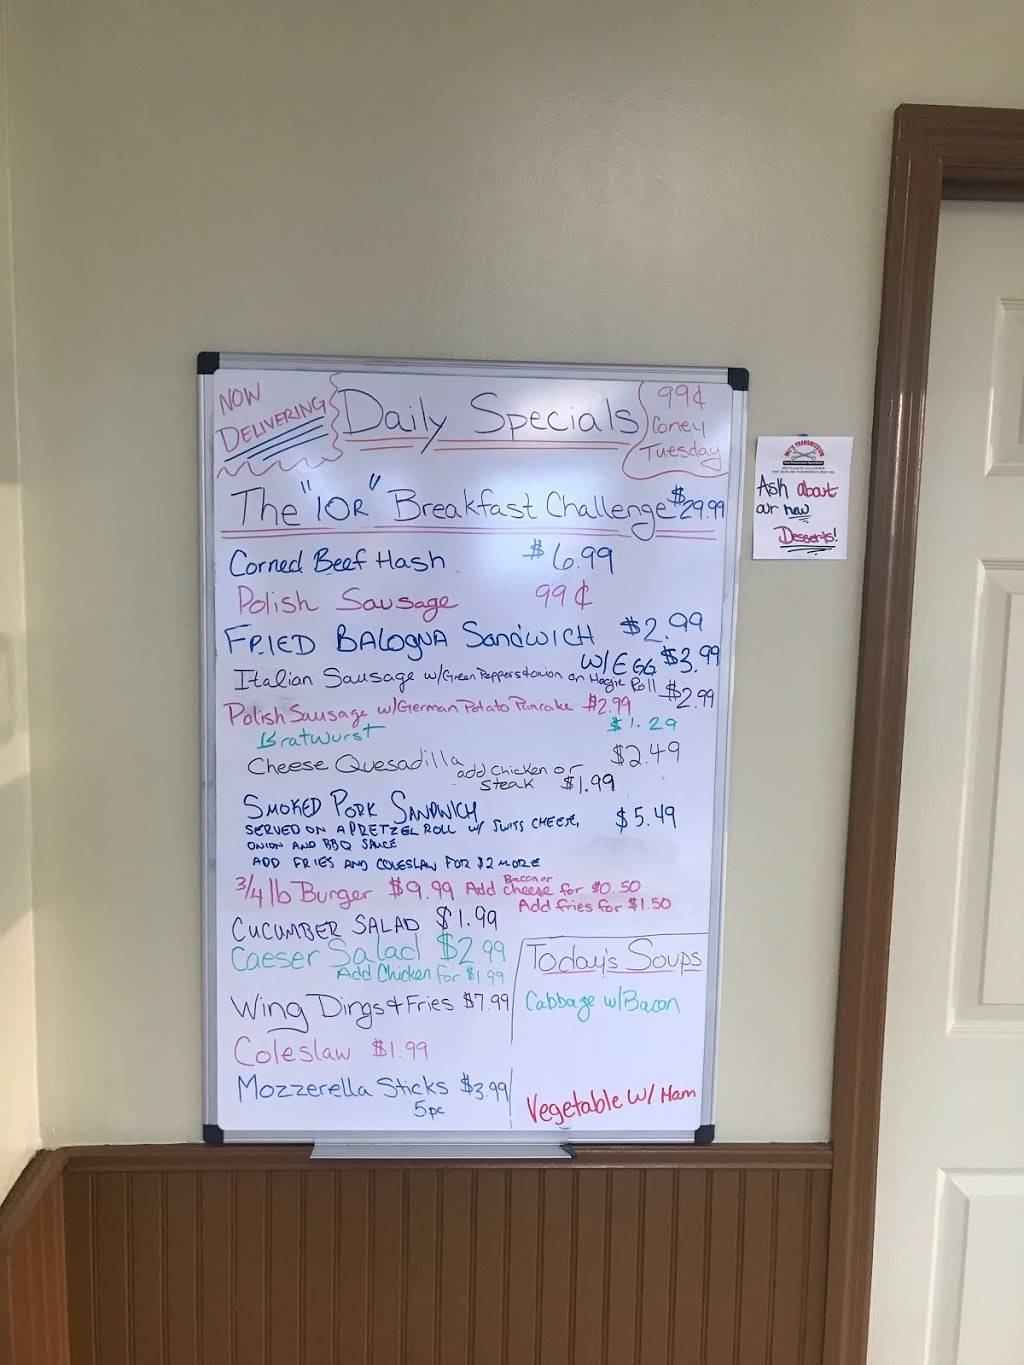 NOW
DELIVERING
Daily Specials
99¢
Coney
Tuesday
The "IOR" Breakfast Challenge $29.99
Corned Beef Hash $6.99
Polish Sausage 99¢
FRIED BALOGNA SANDWICH $2.99
W/EGG $3.99
Italian Sausage w/Green Peppers+onion on Hogie Roll $2.99
Polish Sausage w/German Potato Pancake $2.99
Bratwurst $1.29
Cheese Quesadilla $2.49
add chicken or
steak $1.99
SMOKED PORK SANDWICH $5.49
SERVED ON A PRETZEL ROLL W/ SWISS CHEESE,
ONION AND BBQ SAUCE
ADD FRIES AND COLESLAW FOR $2 MORE
3/4 lb Burger $9.99 Add Bacon or cheese for $0.50
Add fries for $1.50
CUCUMBER SALAD $1.99
Caeser Salad $2.99
Add Chicken for $1.99
Wing Dings+Fries $7.99
Coleslaw $1.99
Mozzerella Sticks $3.99
5pc
Today's Soups
Cabbage w/Bacon
Vegetable w/ Ham
TRANSMISSION
Ask about
our new
Desserts!